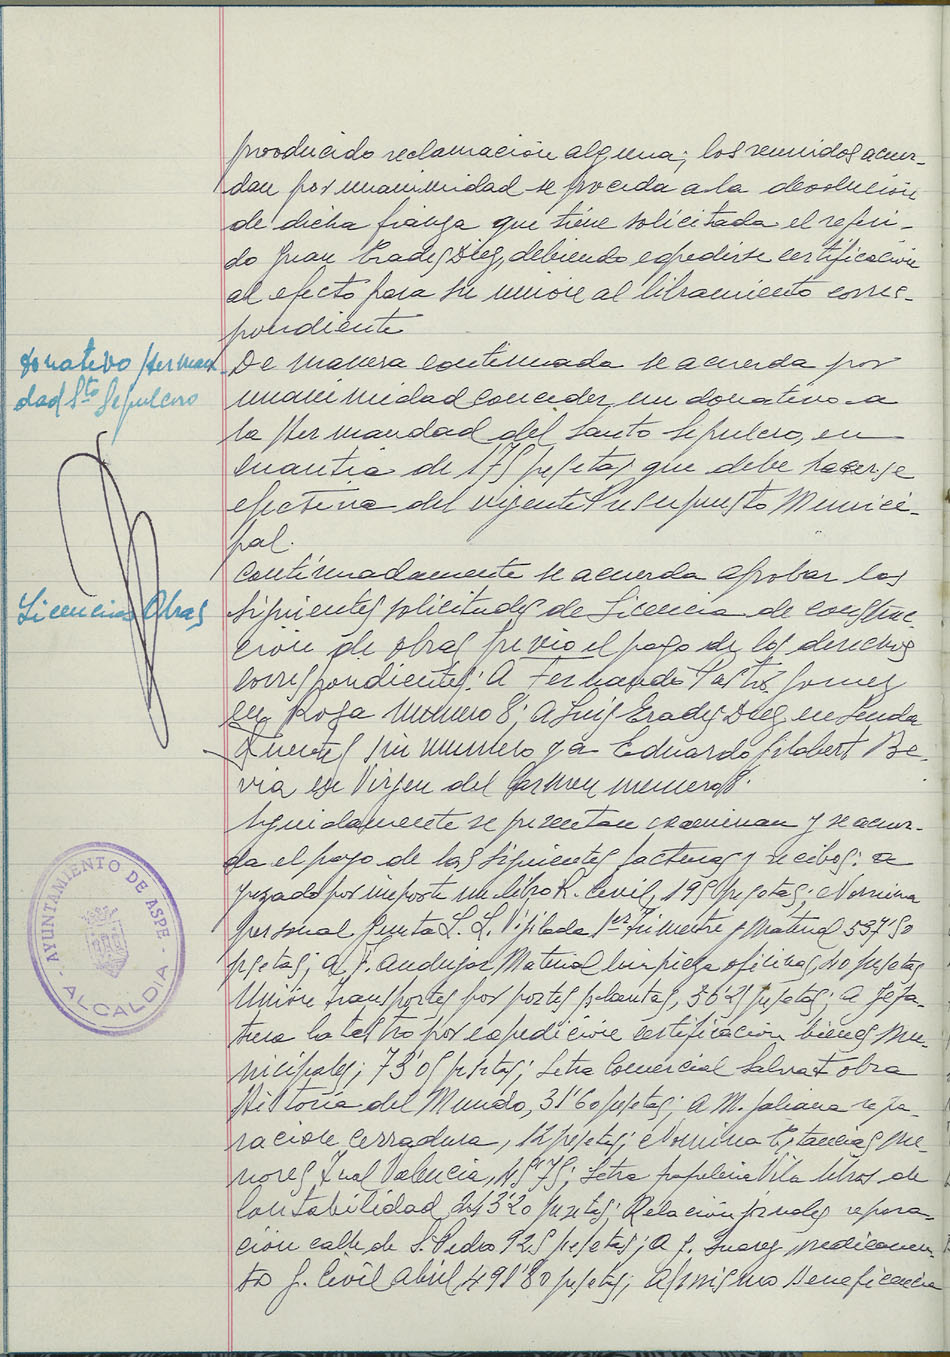 producido reclamacion alguna; los reunidos acuer-
dan por unanimidad se proceda a la devolucion
de dicha fianza que tiene solicitada el referi-
do Juan Erades Diez, debiendo expedirse certificacion
al efecto para su union al libramiento corres-
pondiente
Donativo Herman
dad Sto Sepulcro
De manera continuada se acuerda por
unanimidad conceder un donativo a
la Hermandad del Santo Sepulcro, en
cuantia de 175 pesetas que debe hacerse
efectiva del vigente Presupuesto Munici-
pal.
Licencias Obras
Continuadamente se acuerda aprobar las
siguientes solicitudes de Licencia de construc-
cion de obras previo el pago de los derechos
correspondientes: A Fernando Pastor Gomez
en Rosa numero 8; A Luis Erades Diez en Senda
Fuentes sin numero y a Eduardo Gilabert Be-
via en Virgen del Carmen numero
Seguidamente se presentan examinan y se acuer-
da el pago de las siguientes facturas y recibos: a
Juzgado por importe un libro R. Civil, 195 pesetas; Nomina
personal Junta L. Vigilada 1er Trimestre y Material 537'50
pesetas; A F. Andujar Material limpieza oficinas 40 pesetas
Union Transportes por portes plantas, 36'25 pesetas; A Jefa-
tura Catastro por expedicion certificacion bienes mu-
nicipales; 73'05 pesetas; Letra Comercial Salvat obra
Historia del Mundo, 31'60 pesetas; A M. Galiana repa-
racion cerradura, 12 pesetas; Nomina Estancias me-
nores Tral Valencia, 15'75; Letra papeleria Vila libros de
Contabilidad 243'20 pesetas; Relacion jornales repara-
cion calle de S. Pedro 925 pesetas; A J. Suarez medicamen-
tos G. Civil Abril 491'80 pesetas; Al mismo Beneficencia
AYUNTAMIENTO DE ASPE
ALCALDIA